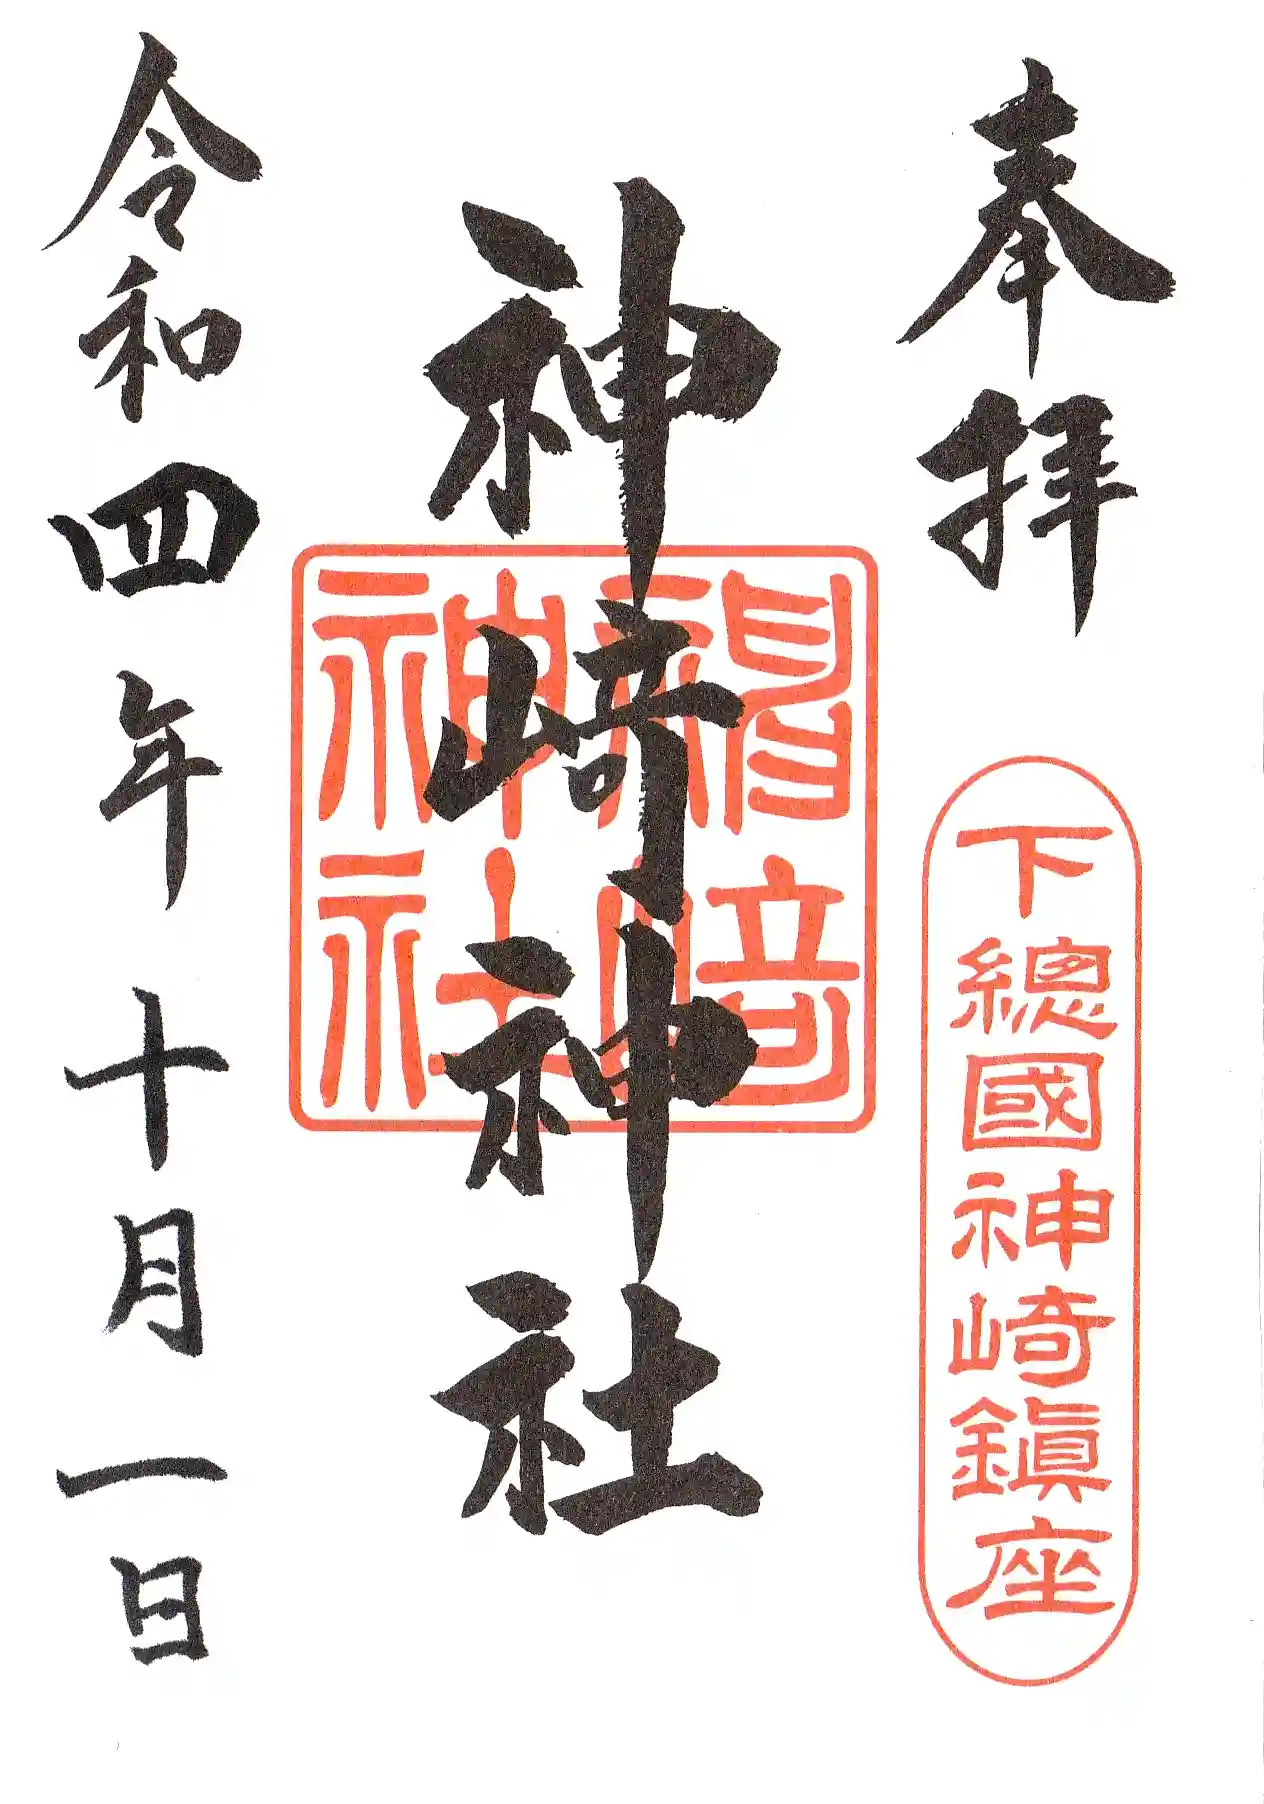 奉拝
下總國神崎鎭座
神﨑神社
神﨑
神社
令和四年十月一日